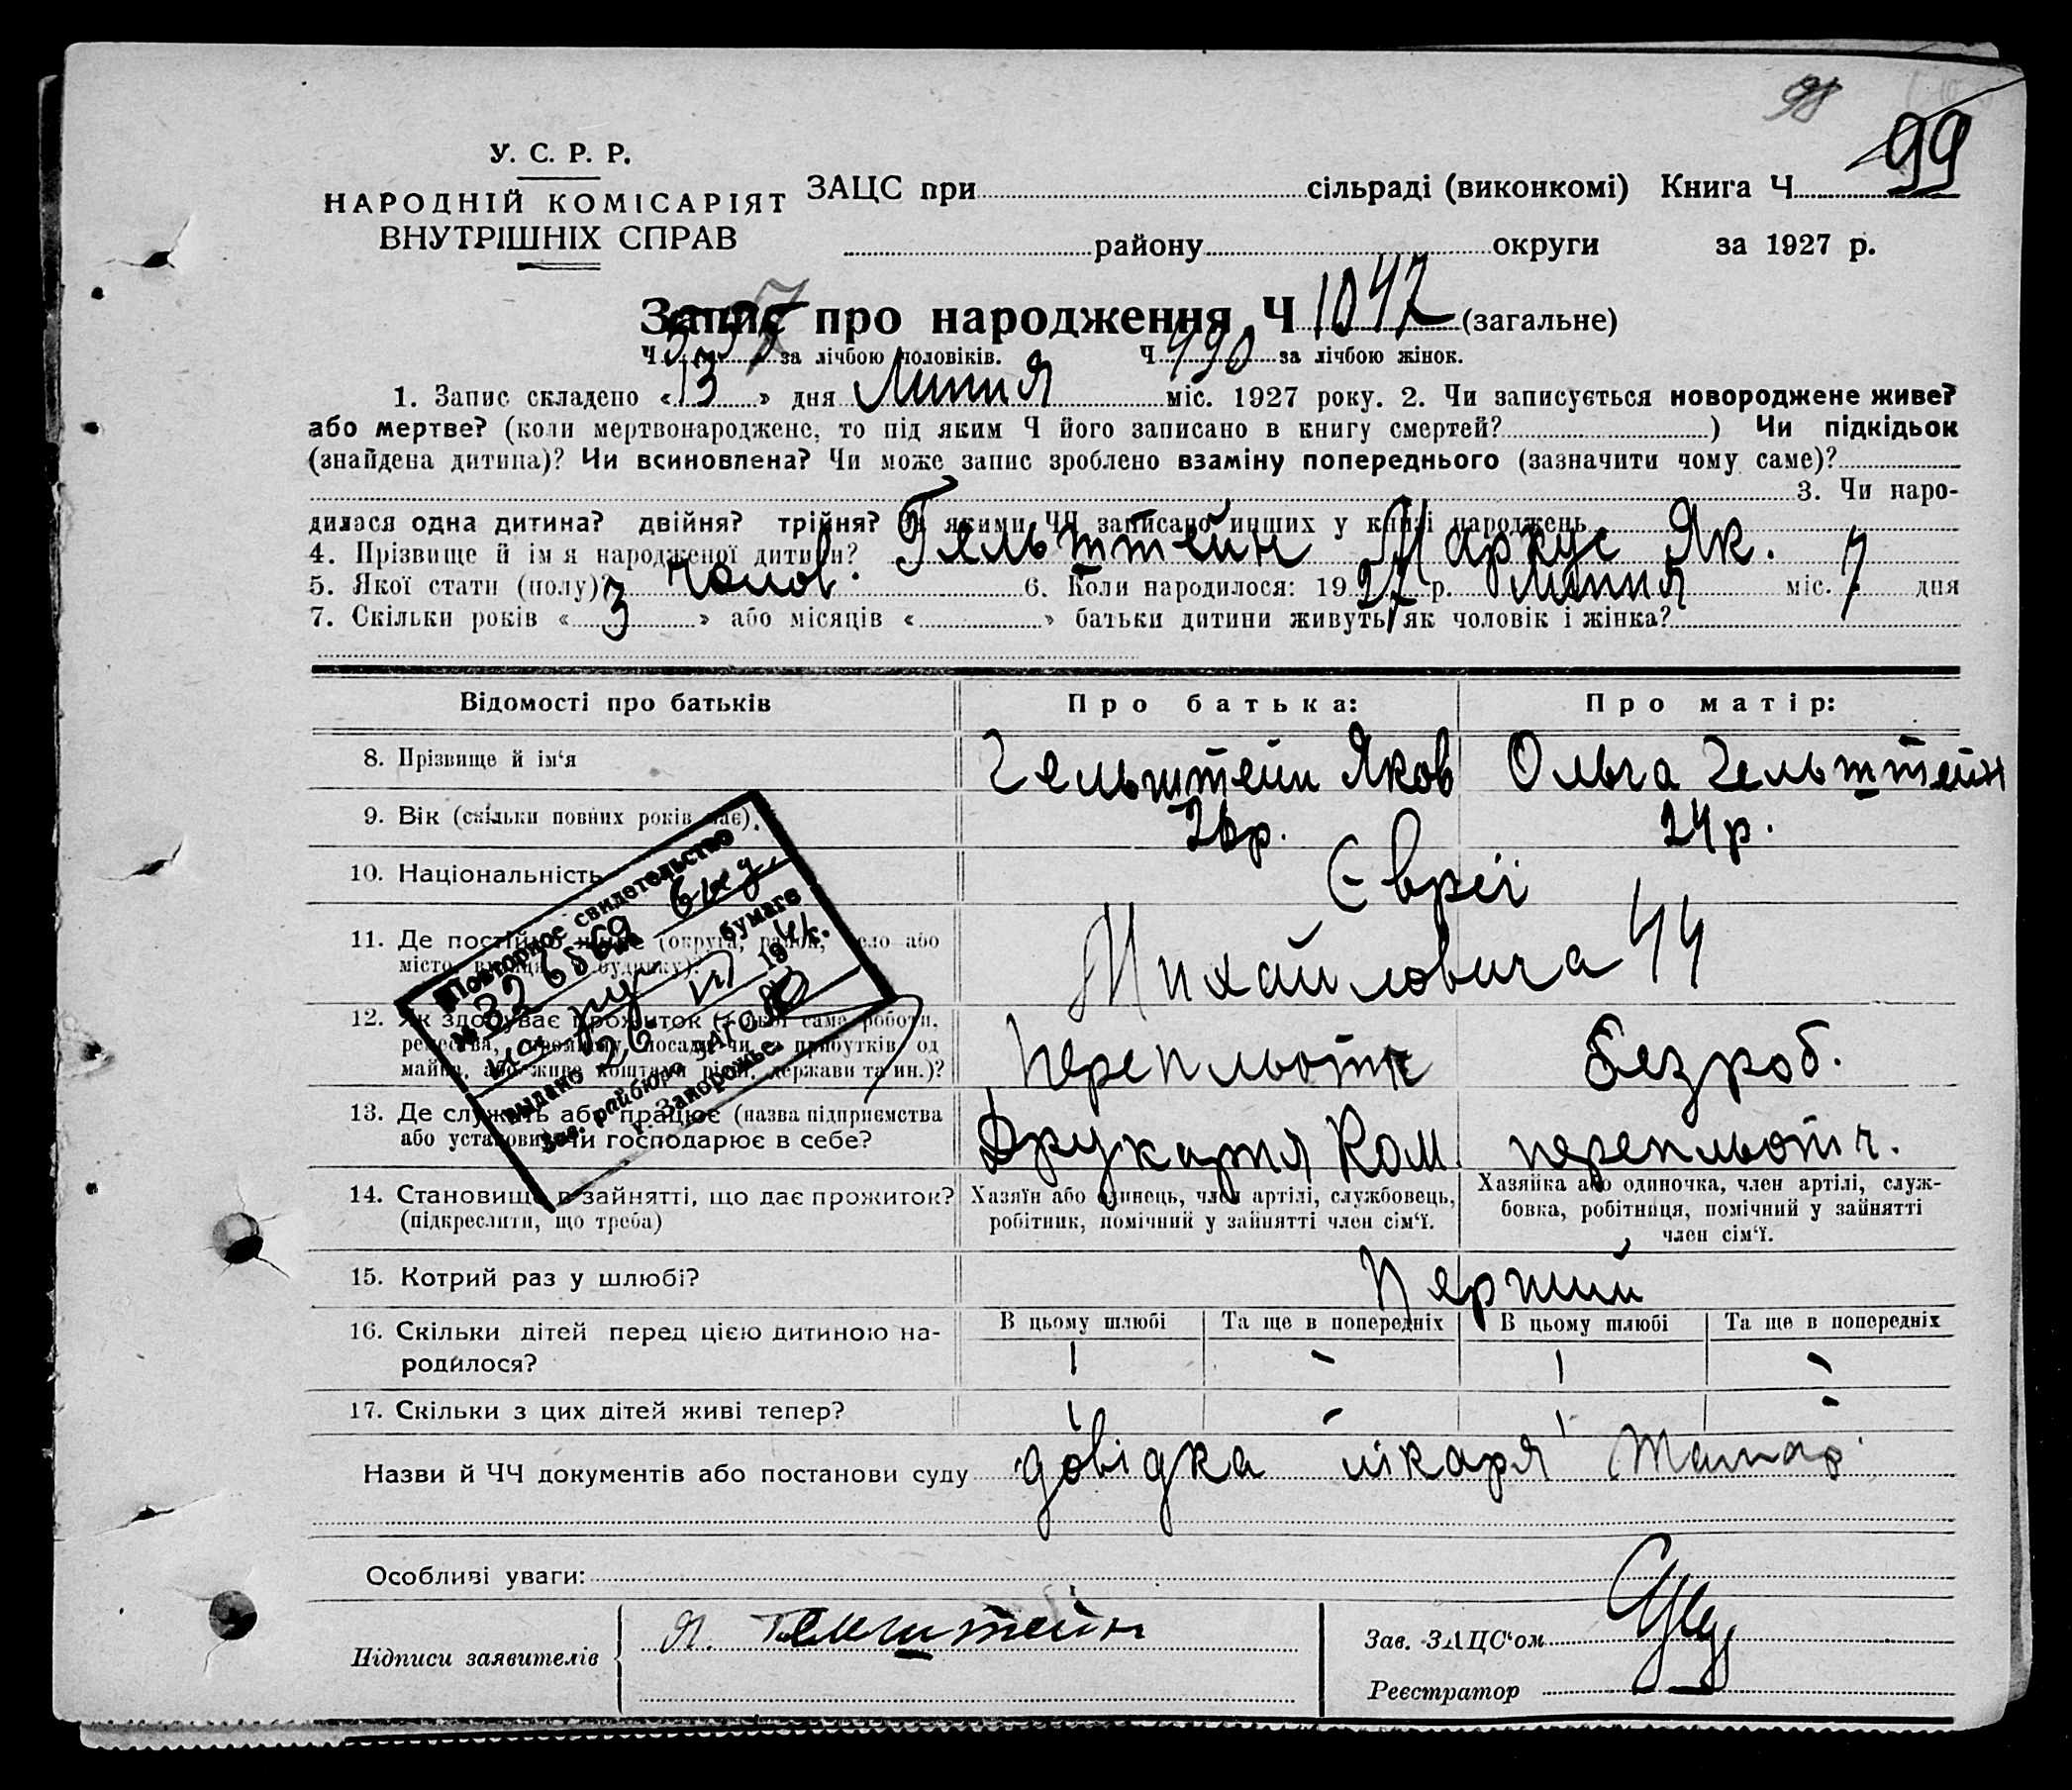 98
99
У. С. Р. Р.
НАРОДНІЙ КОМІСАРІЯТ
ВНУТРІШНІХ СПРАВ
ЗАЦС при сільраді (виконкомі) Книга Ч
району округи за 1927 р.
Запис про народження Ч 1047 (загальне)
Ч 557 за лічбою чоловіків. Ч 490 за лічбою жінок.
1. Запис складено «13» дня Липня міс. 1927 року. 2. Чи записується новороджене живе?
або мертве? (коли мертвонароджене, то під яким Ч його записано в книгу смертей? ) Чи підкідьок
(знайдена дитина)? Чи всиновлена? Чи може запис зроблено взаміну попереднього (зазначити чому саме)?
3. Чи наро-
дилася одна дитина? двійня? трійня? За якими ЧЧ записано инших у книзі народжень
4. Прізвище й ім я народженої дитини? Гельштейн Маркус Як.
5. Якої стати (полу)? чолов. 6. Коли народилося: 1927 р. Липня міс. 7 дня
7. Скільки років «3» або місяців « » батьки дитини живуть як чоловік і жінка?
Відомості про батьків Про батька: Про матір:
8. Прізвище й ім'я Гельштейн Яков Ольга Гельштейн
9. Вік (скільки повних років має). 26р. 24р.
10. Національність Євреї
11. Де постійно живе (округа, район, село або
місто, вулиця, Ч будинку)? Михайловича 44
12. Як здобуває прожиток (з якої саме роботи,
ремества, промислу, посади чи з прибутків од
майна, або живе коштами рідні, держави та ин.)? Перепльотч безроб.
13. Де служить або працює (назва підприємства
або установи) чи господарює в себе? Друкарня Ком. перепльотч.
14. Становище в зайнятті, що дає прожиток?
(підкреслити, що треба)
Хазяїн або одинець, член артілі, службовець,
робітник, помічний у зайнятті член сім'ї.
Хазяйка або одиночка, член артілі, служ-
бовка, робітниця, помічний у зайнятті
член сім'ї.
15. Котрий раз у шлюбі? Перший
16. Скільки дітей перед цією дитиною на-
родилося?
В цьому шлюбі Та ще в попередніх В цьому шлюбі Та ще в попередніх
1 - 1 -
17. Скільки з цих дітей живі тепер? 1 - 1 -
Назви й ЧЧ документів або постанови суду довідка лікаря
Особливі уваги:
Підписи заявителів Я. Гельштейн
Зав. ЗАЦС'ом
Реєстратор
Повторное свидетельство
№
бумаге
выдано 26 VII 194 г.
Зав. райбюро ЗАГС
г. Запорожье